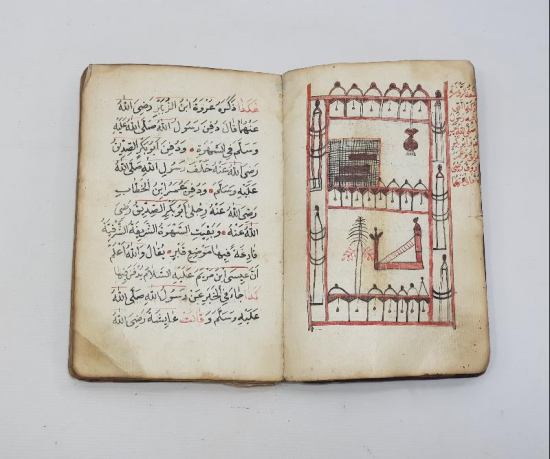 هَكَذَا ذَكَرَهُ عُرْوَةُ ابْنُ الزُّبَيْرِ رَضِىَ اللهُ
عَنْهُمَا قَالَ دُفِنَ رَسُولُ اللهِ صَلَّى اللهُ عَلَيْهِ
وَسَلَّمَ فِى السَّهْرَةِ وَدُفِنَ اَبُو بَكْرٍ الصِّدِّيقُ
رَضِىَ اللهُ عَنْهُ خَلْفَ رَسُولِ اللهِ صَلَّى اللهُ
عَلَيْهِ وَسَلَّمَ وَدُفِنَ عُمَرُ ابْنُ الْخَطَّابِ
رَضِىَ اللهُ عَنْهُ رِجْلَى اَبُو بَكْرٍ الصِّدِّيقِ رَضِىَ
اللهُ عَنْهُ وَبَقِيَتِ السَّهْرَةُ الشَّرْقِيَّةُ
فَارِغَةً فِيهَا مَوْضِعُ قَبْرٍ يُقَالُ وَاللهُ اَعْلَمُ
اَنَّ عِيسَى ابْنَ مَرْيَمَ عَلَيْهِ السَّلَامُ يُدْفَنُ فِيهَا
كَذَا جَاءَ فِى الْخَبَرِ عَنْ رَسُولِ اللهِ صَلَّى اللهُ
عَلَيْهِ وَسَلَّمَ وَقَالَتْ عَايِشَةُ رَضِىَ اللهُ